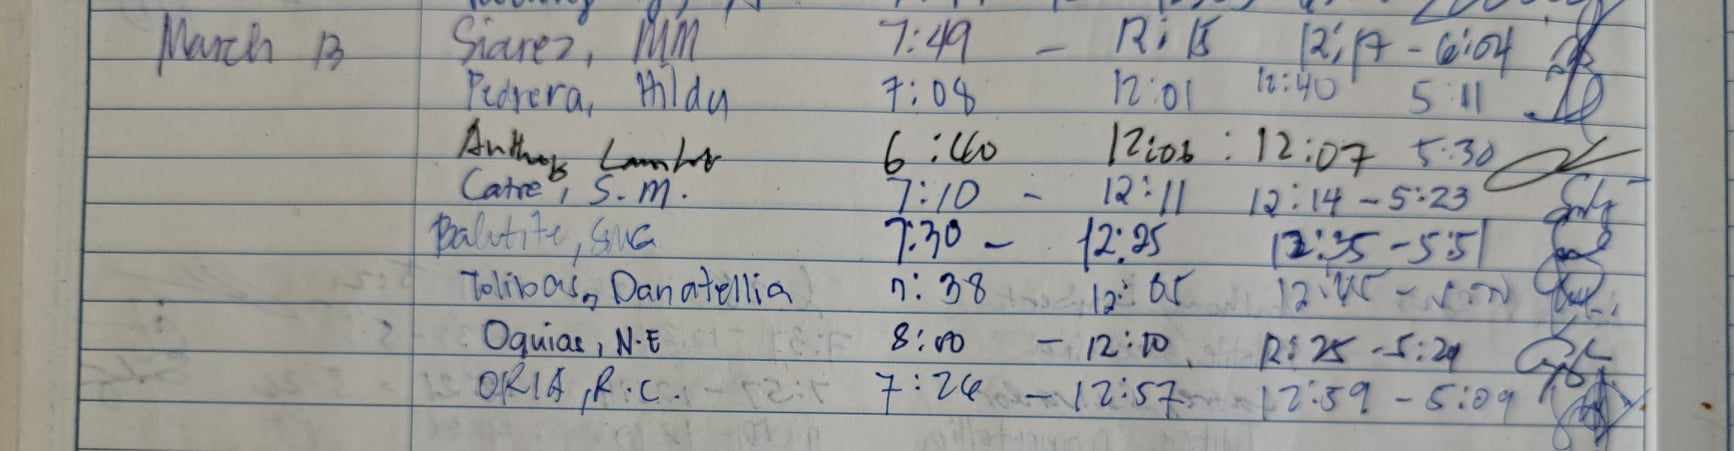 March 13 Siarez, MM 7:49 - 12:15 12:17 - 6:04
Pedrera, Hildy 7:08 12:01 12:40 5:11
6:40 12:06 : 12:07 5:30
Catre, S.M. 7:10 - 12:11 12:14 - 5:23
Balutite, 7:30 - 12:25 12:35 - 5:51
Tolibas, Danatellia 7:38 12:05 12:45 -
Oquias, N.E 8:00 - 12:10 12:25 - 5:29
ORIA, R.C. 7:26 - 12:57 12:59 - 5:09